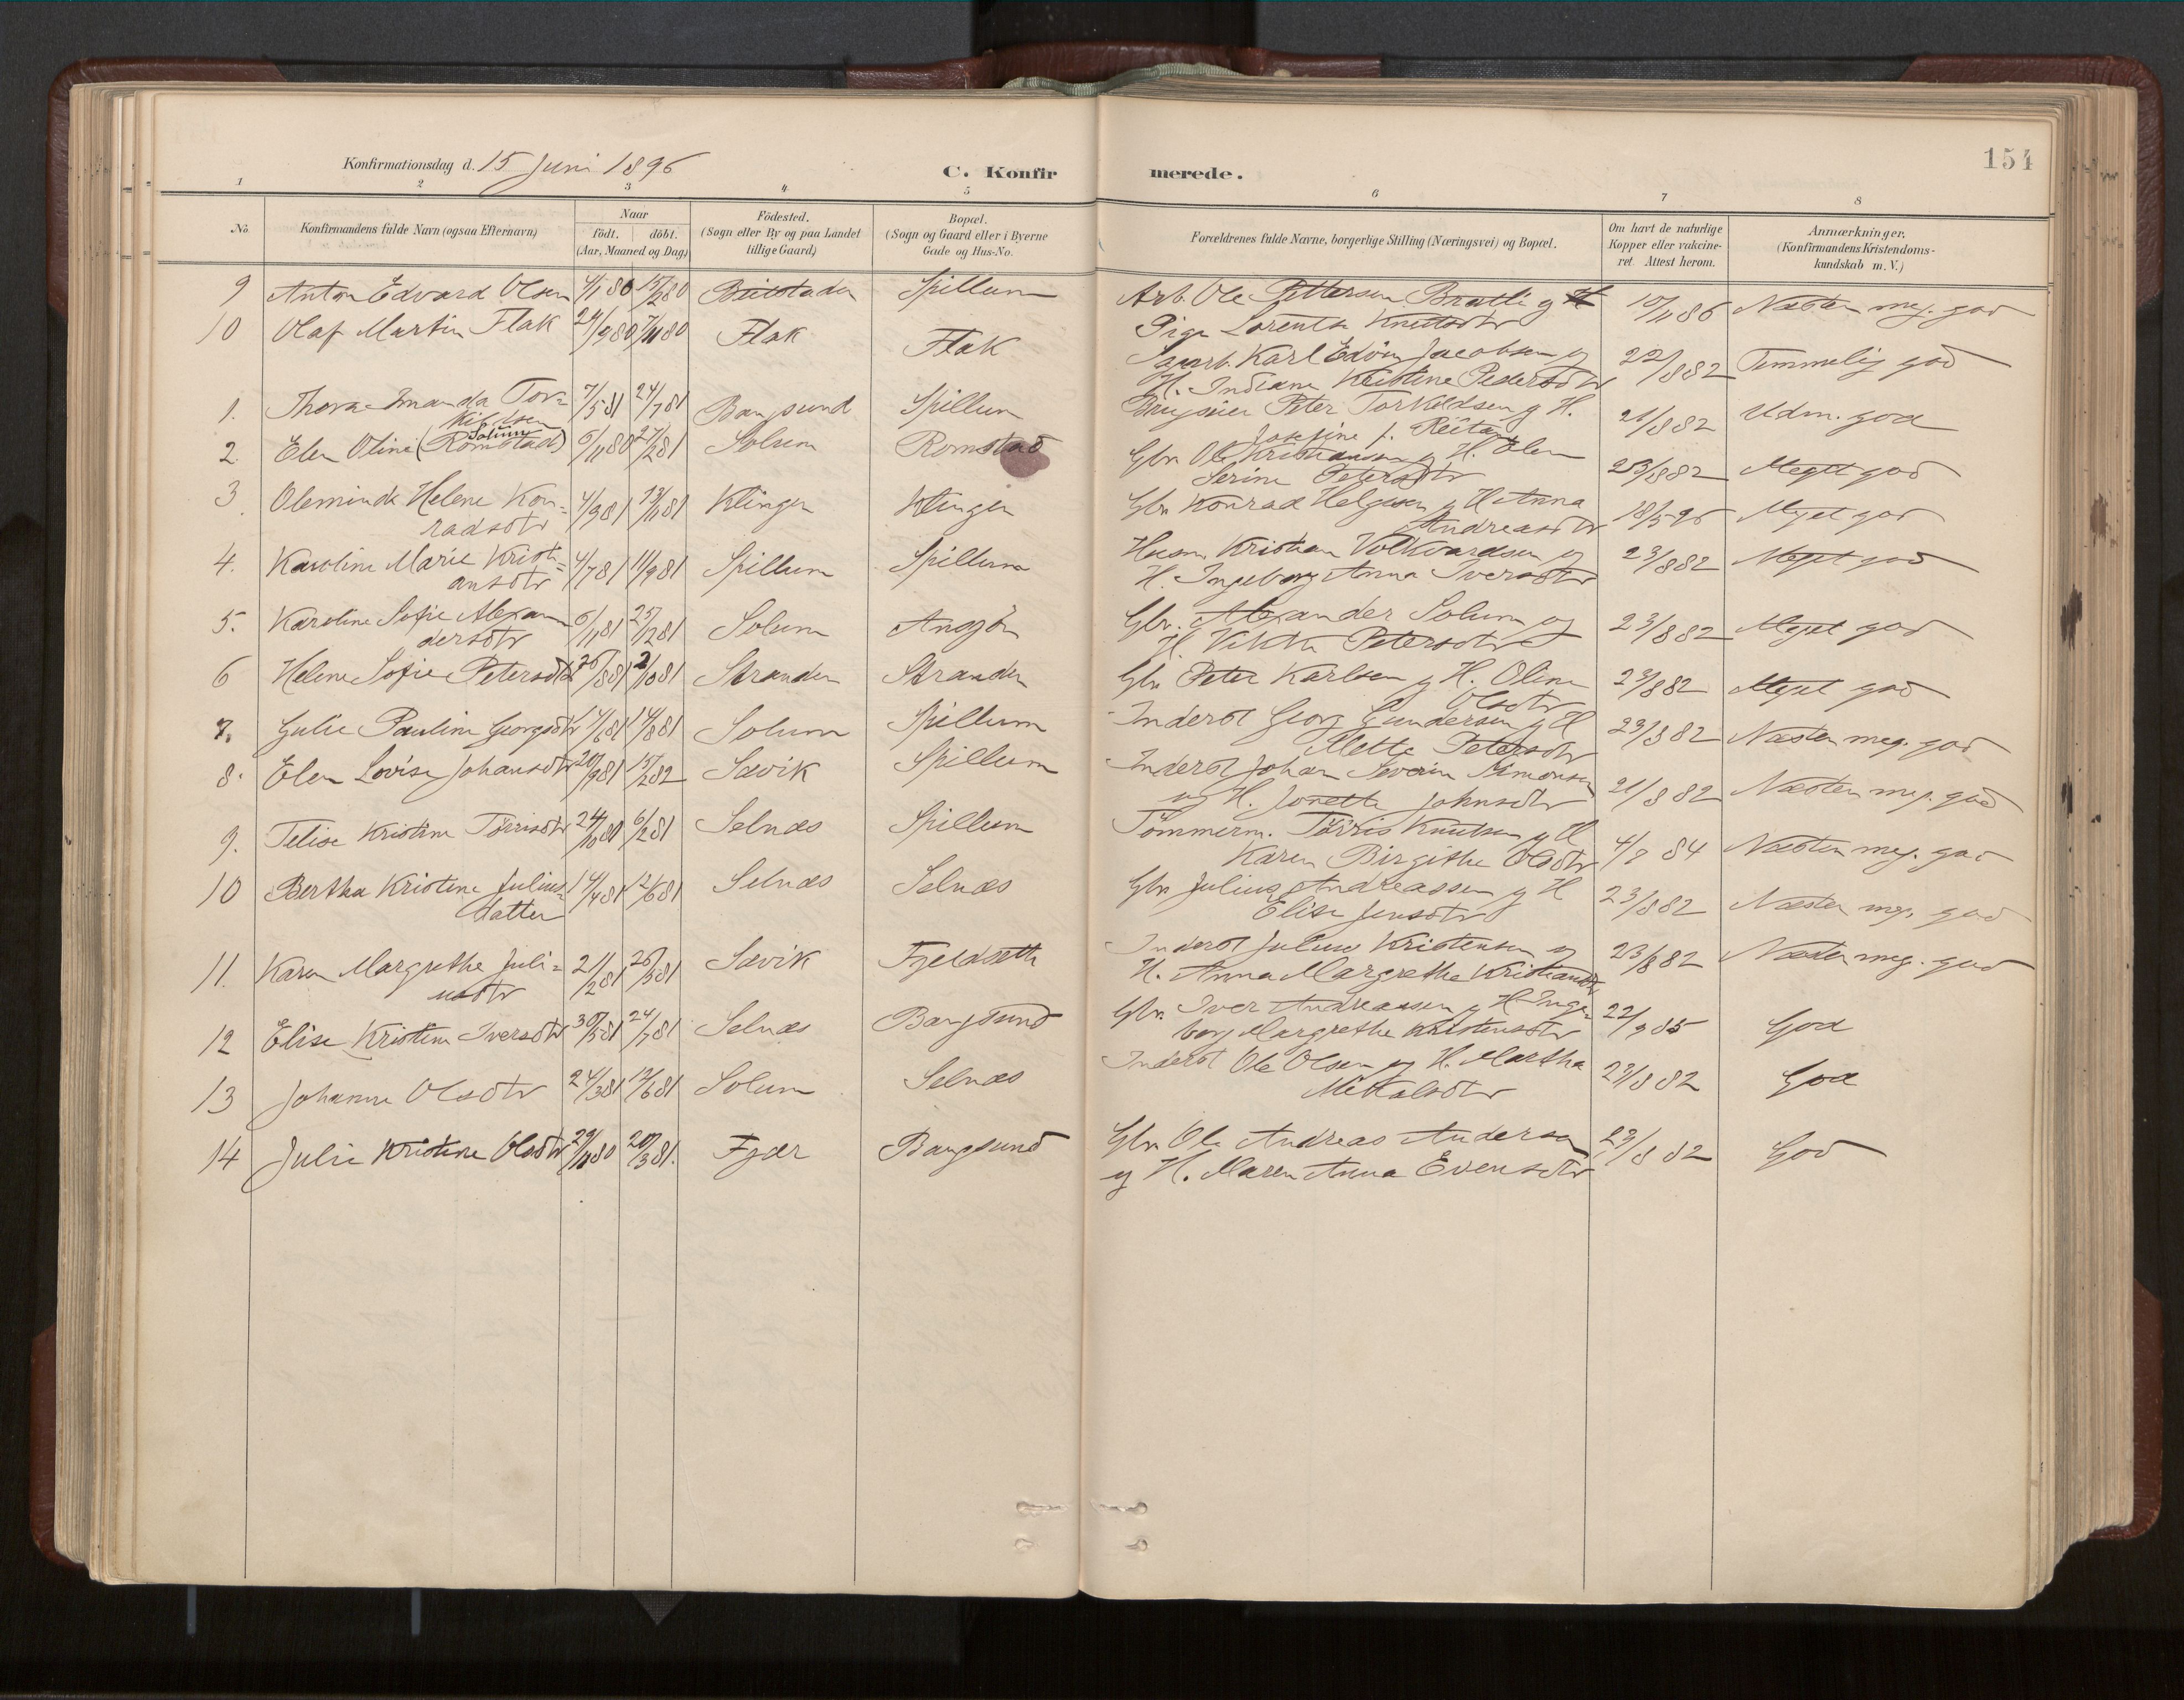 154
Konfirmationsdag d. 15 Juni 1896
C. Konfirmerede.
1 2 3 4 5 6 7 8
No. Konfirmandens fulde Navn (ogsaa Efternavn) Naar født. døbt. (Aar, Maaned og Dag) Födested. (Sogn eller By og paa Landet tillige Gaard) Bopæl. (Sogn og Gaard eller i Byerne Gade og Hus-No. Forældrenes fulde Navne, borgerlige Stilling (Næringsvei) og Bopæl. Om havt de naturlige Kopper eller vakcineret. Attest herom. Anmærkninger. (Konfirmandens Kristendomskundskab m. V.)
9 Anton Edvard Olsen 4/1 80 15/2 80 Beitstaden Spillum Arb. Ole Pettersen Bratli og H
Pige Lorentse Knutsdtr 10/11 86 Næsten meg. god
10 Olaf Martin Flak 29/9 80 7/11 80 Flak Flak Karl Edvin Jacobsen og
H. Indiane Kristine Pedersdtr 22/8 82 Temmelig god
1. Thora Amanda Tor=
kildsen 7/5 81 24/7 81 Bangsund Spillum Peter Torkildsen og H.
Josefine f. Reitan 21/8 82 Udm. god
2. Elen Oline (Romstad) Solum 6/11 80 27/2 81 Solum Romstad Gbr. Ole Kristiansen og H. Elen
Serine Petersdtr 23/8 82 Meget god
3. Oleminde Helene Kon=
radsdtr 4/9 81 13/11 81 Klingen Klingen Gbr. Konrad Helgesen og H Anna
Andreasdtr 18/5 96 Meget god
4. Karoline Marie Kristi=
ansdtr 4/7 81 11/9 81 Spillum Spillum Husm. Kristian Volkvardsen og
H. Ingeborg Anna Iversdtr 23/8 82 Meget god
5. Karoline Sofie Alexan
dersdtr 6/11 81 25/12 81 Solum Angjön Gbr. Alexander Solum og
H. Vikta Petersdtr 23/8 82 Meget god
6 Helene Sofie Petersdtr 26/8 81 2/10 81 Stranden Stranden Gbr. Peter Karlsen og H. Oline
Olsdtr 23/8 82 Meget god
7. Julie Pauline Georgsdtr 17/6 81 14/8 81 Solum Spillum Inderst Georg Gundersen og H
Mette Petersdtr 23/8 82 Næsten meg. god
8. Elen Lovise Johansdtr 20/9 81 15/2 82 Sævik Spillum Inderst Johan Severin Simonsen
og H. Jonette Johnsdtr 21/8 82 Næsten meg. god
9. Kristine Törrisdtr 24/10 80 6/2 81 Selnæs Spillum Tömmerm. Törris Knutsen og H
Karen Birgithe Olsdtr 4/8 84 Næsten meg. god
10 Bertha Kristine Julius=
datter 14/4 81 12/6 81 Selnæs Selnæs Gbr Julius Andreassen og H
Elise Jensdtr 23/8 82 Næsten meg. god
11. Karen Margrethe Juli=
usdtr 21/2 81 26/5 81 Sævik Fjeldseth Inderst Julius Kristensen og
H. Anna Margrethe Kristiansdtr 23/8 82 Næsten meg. god
12 Elise Kristine Iversdtr 30/5 81 24/7 81 Selnæs Bangsund Gbr. Iver Andreassen og H Inge=
borg Margrethe Kristensdtr 22/9 85 God
13 Johanne Olsdtr 24/3 81 12/6 81 Solum Selnæs Inderst Ole Olsen og H. Martha
Mikalsdtr 23/8 82 God
14 Julie Kristine Olsdtr 29/11 80 20/3 81. Fjær Bangsund Gbr. Ole Andreas Andersen
og H. Maren Anna Evensdtr 23/8 82 God